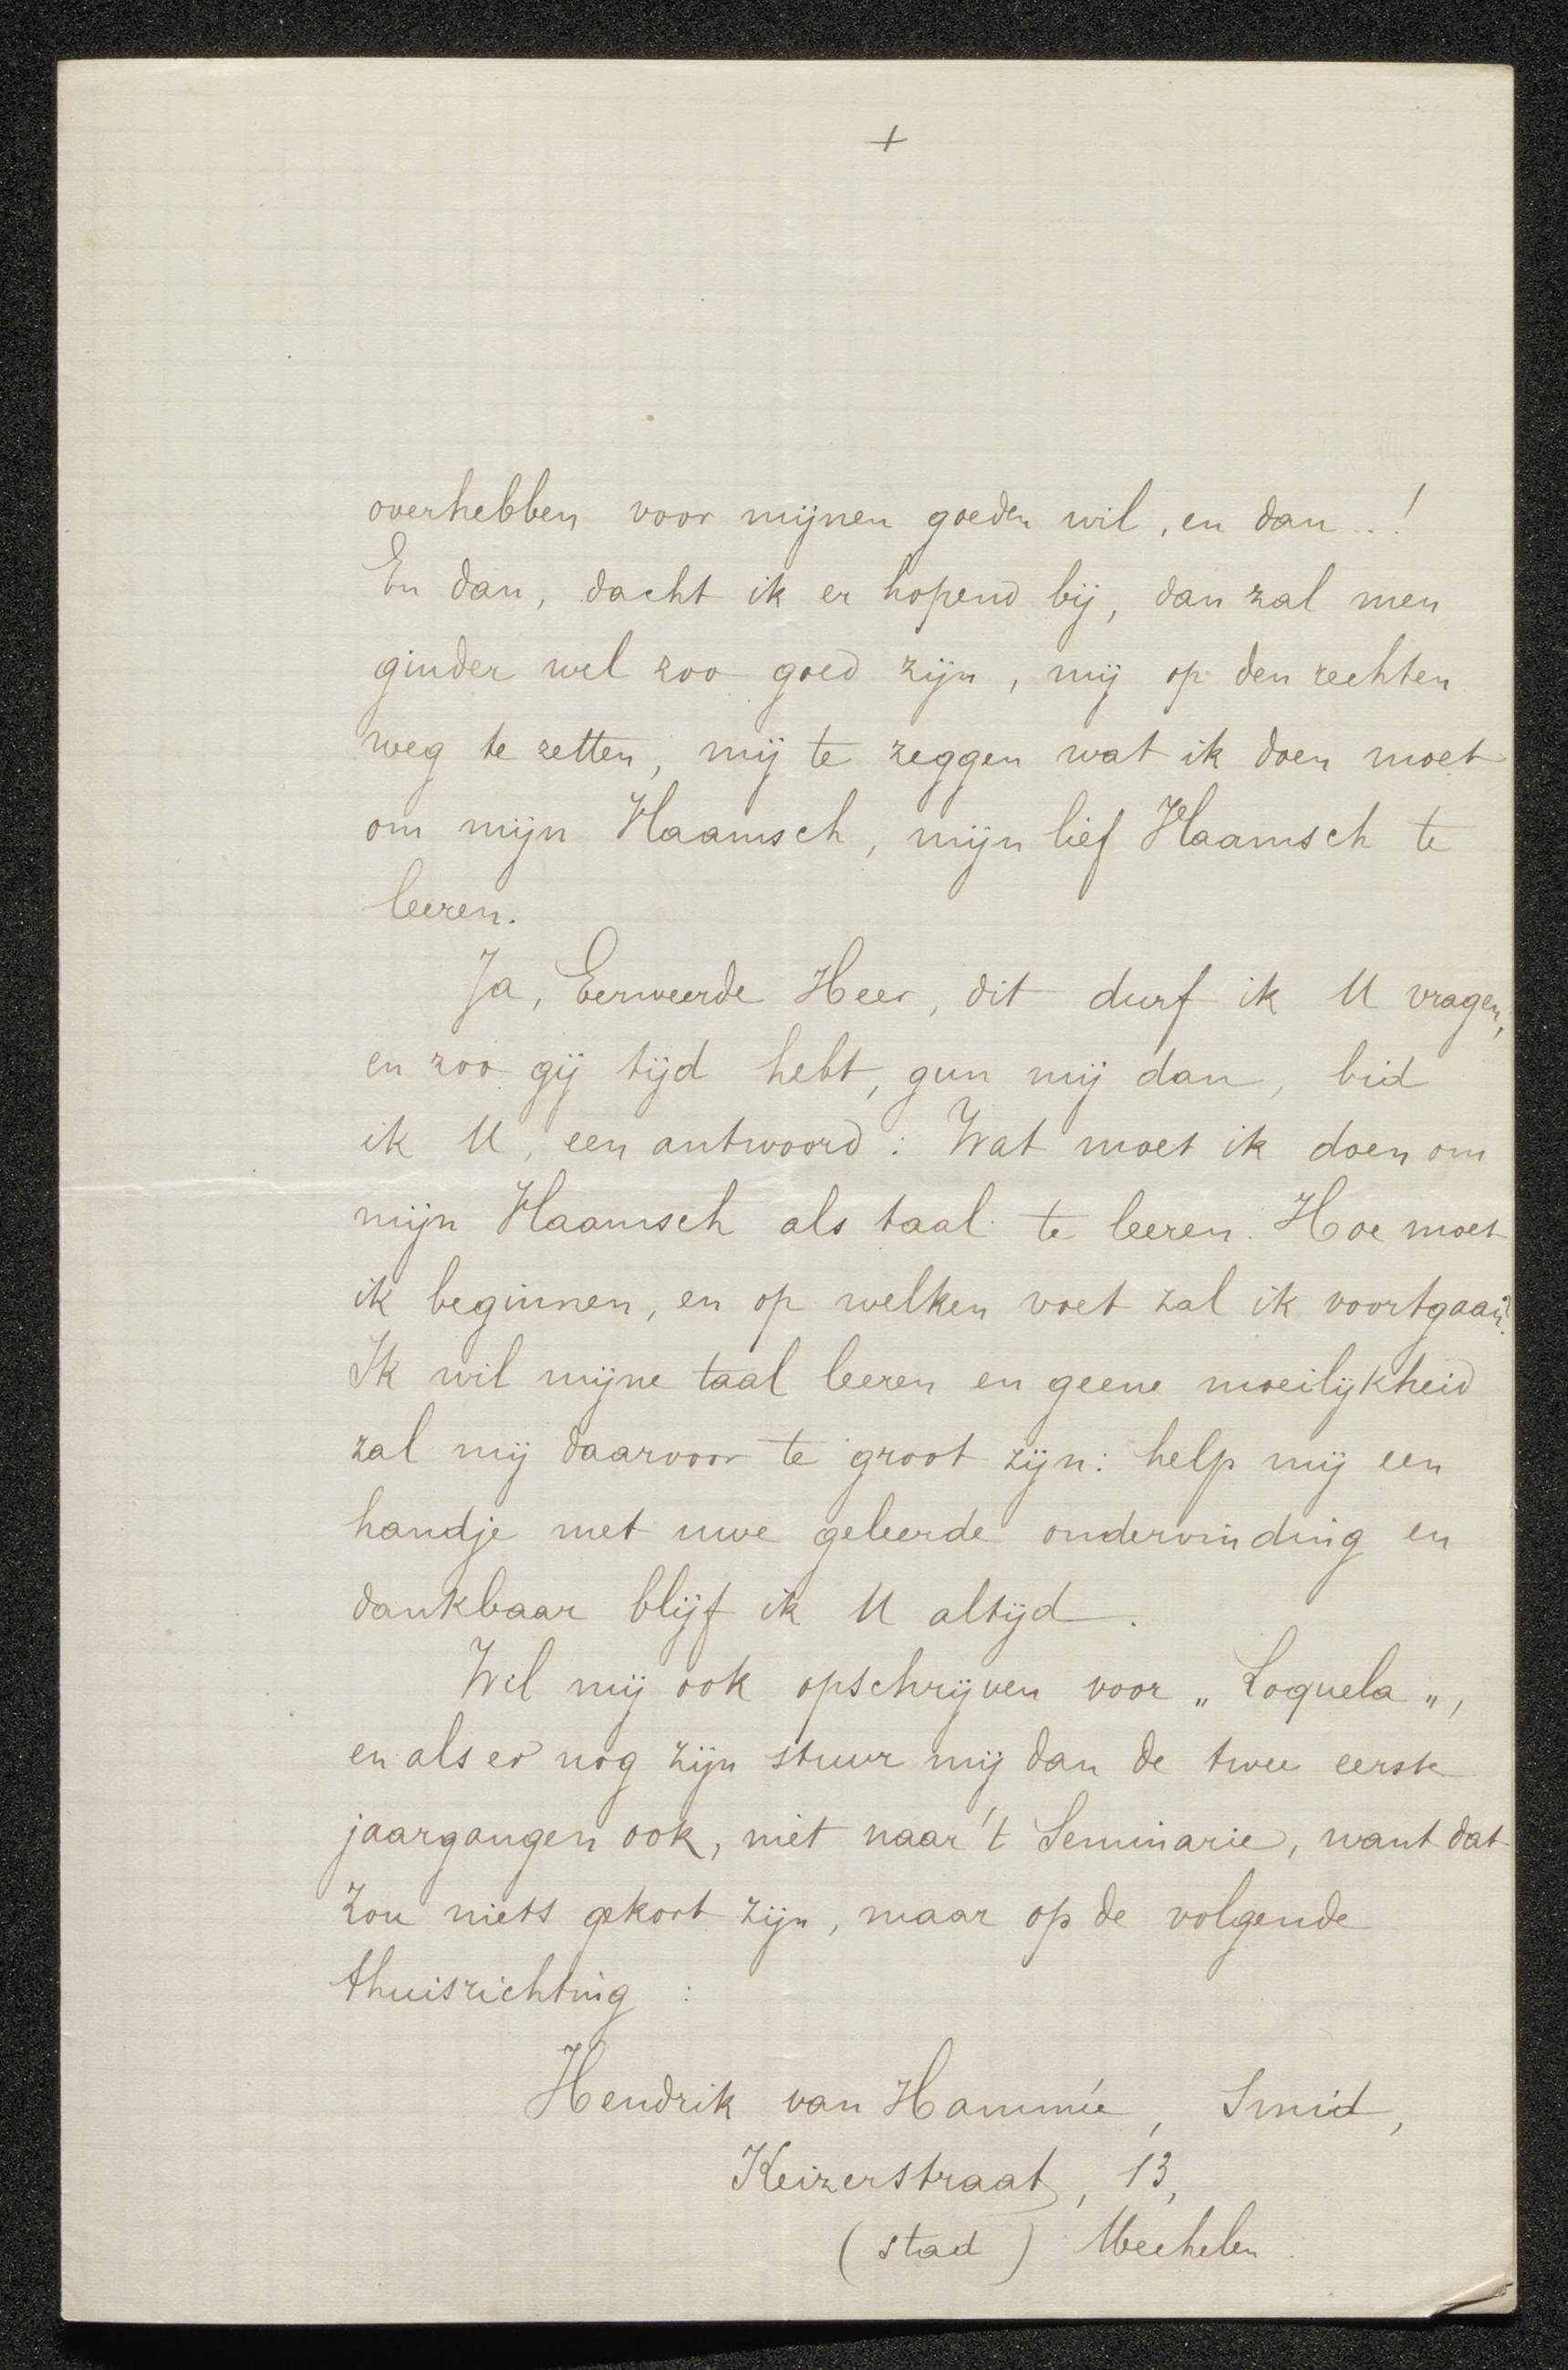 +
overhebben voor mijnen goeden wil, en dan ..!
En dan, dacht ik er hopend bij, dan zal men
ginder wel zoo goed zijn, mij op den rechten
weg te zetten, mij te zeggen wat ik doen moet
om mijn Vlaamsch, mijn lief Vlaamsch te
leeren.
Ja, Eerweerde Heer, dit durf ik U vragen,
en zoo gij tijd hebt, gun mij dan, bid
ik U, een antwoord: Wat moet ik doen om
mijn Vlaamsch als taal te leeren. Hoe moet
ik beginnen, en op welken voet zal ik voortgaan?
Ik wil mijne taal leeren en geene moeilijkheid
zal mij daarvoor te groot zijn: help mij een
handje met uwe geleerde ondervinding en
dankbaar blijf ik U altijd.
Wil mij ook opschrijven voor „Loquela„,
en als er nog zijn stuur mij dan de twee eerste
jaargangen ook, niet naar 't Seminarie, want dat
zou niets gekort zijn, maar op de volgende
thuisrichting :
Hendrik van Hammée, Smid,
Keizerstraat, 13,
(stad) Mechelen.